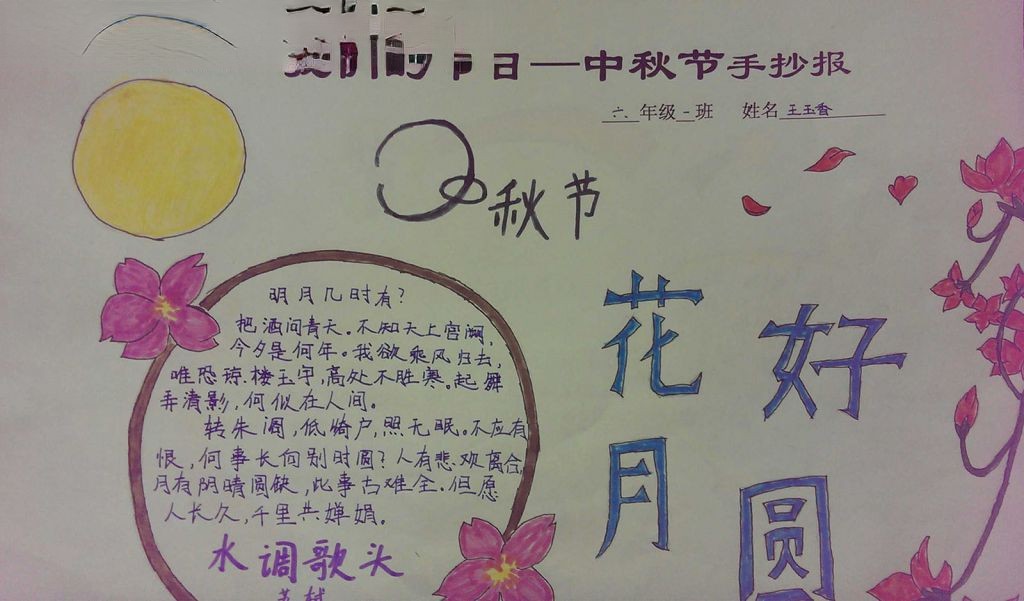 日—中秋节手抄报
六 年级 一 班 姓名 王玉香
秋节
明月几时有？
把酒问青天。不知天上宫阙，
今夕是何年。我欲乘风归去，
唯恐琼楼玉宇，高处不胜寒。起舞
弄清影，何似在人间。
转朱阁，低绮户，照无眠。不应有
恨，何事长向别时圆？人有悲欢离合，
月有阴晴圆缺，此事古难全。但愿
人长久，千里共婵娟。
水调歌头
苏轼
花好
月圆